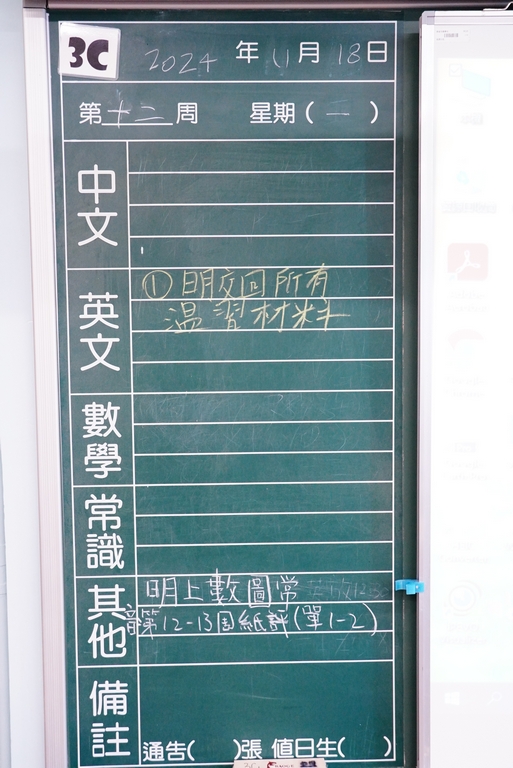 3C 2024 年 11 月 18 日
第 十二 周 星期 ( 一 )
中文
英文
①明交回所有
溫習材料
數學
常識
其他
明上數圖常
音第12-13周紙評(單1-2)
備註
通告( )張 值日生( )